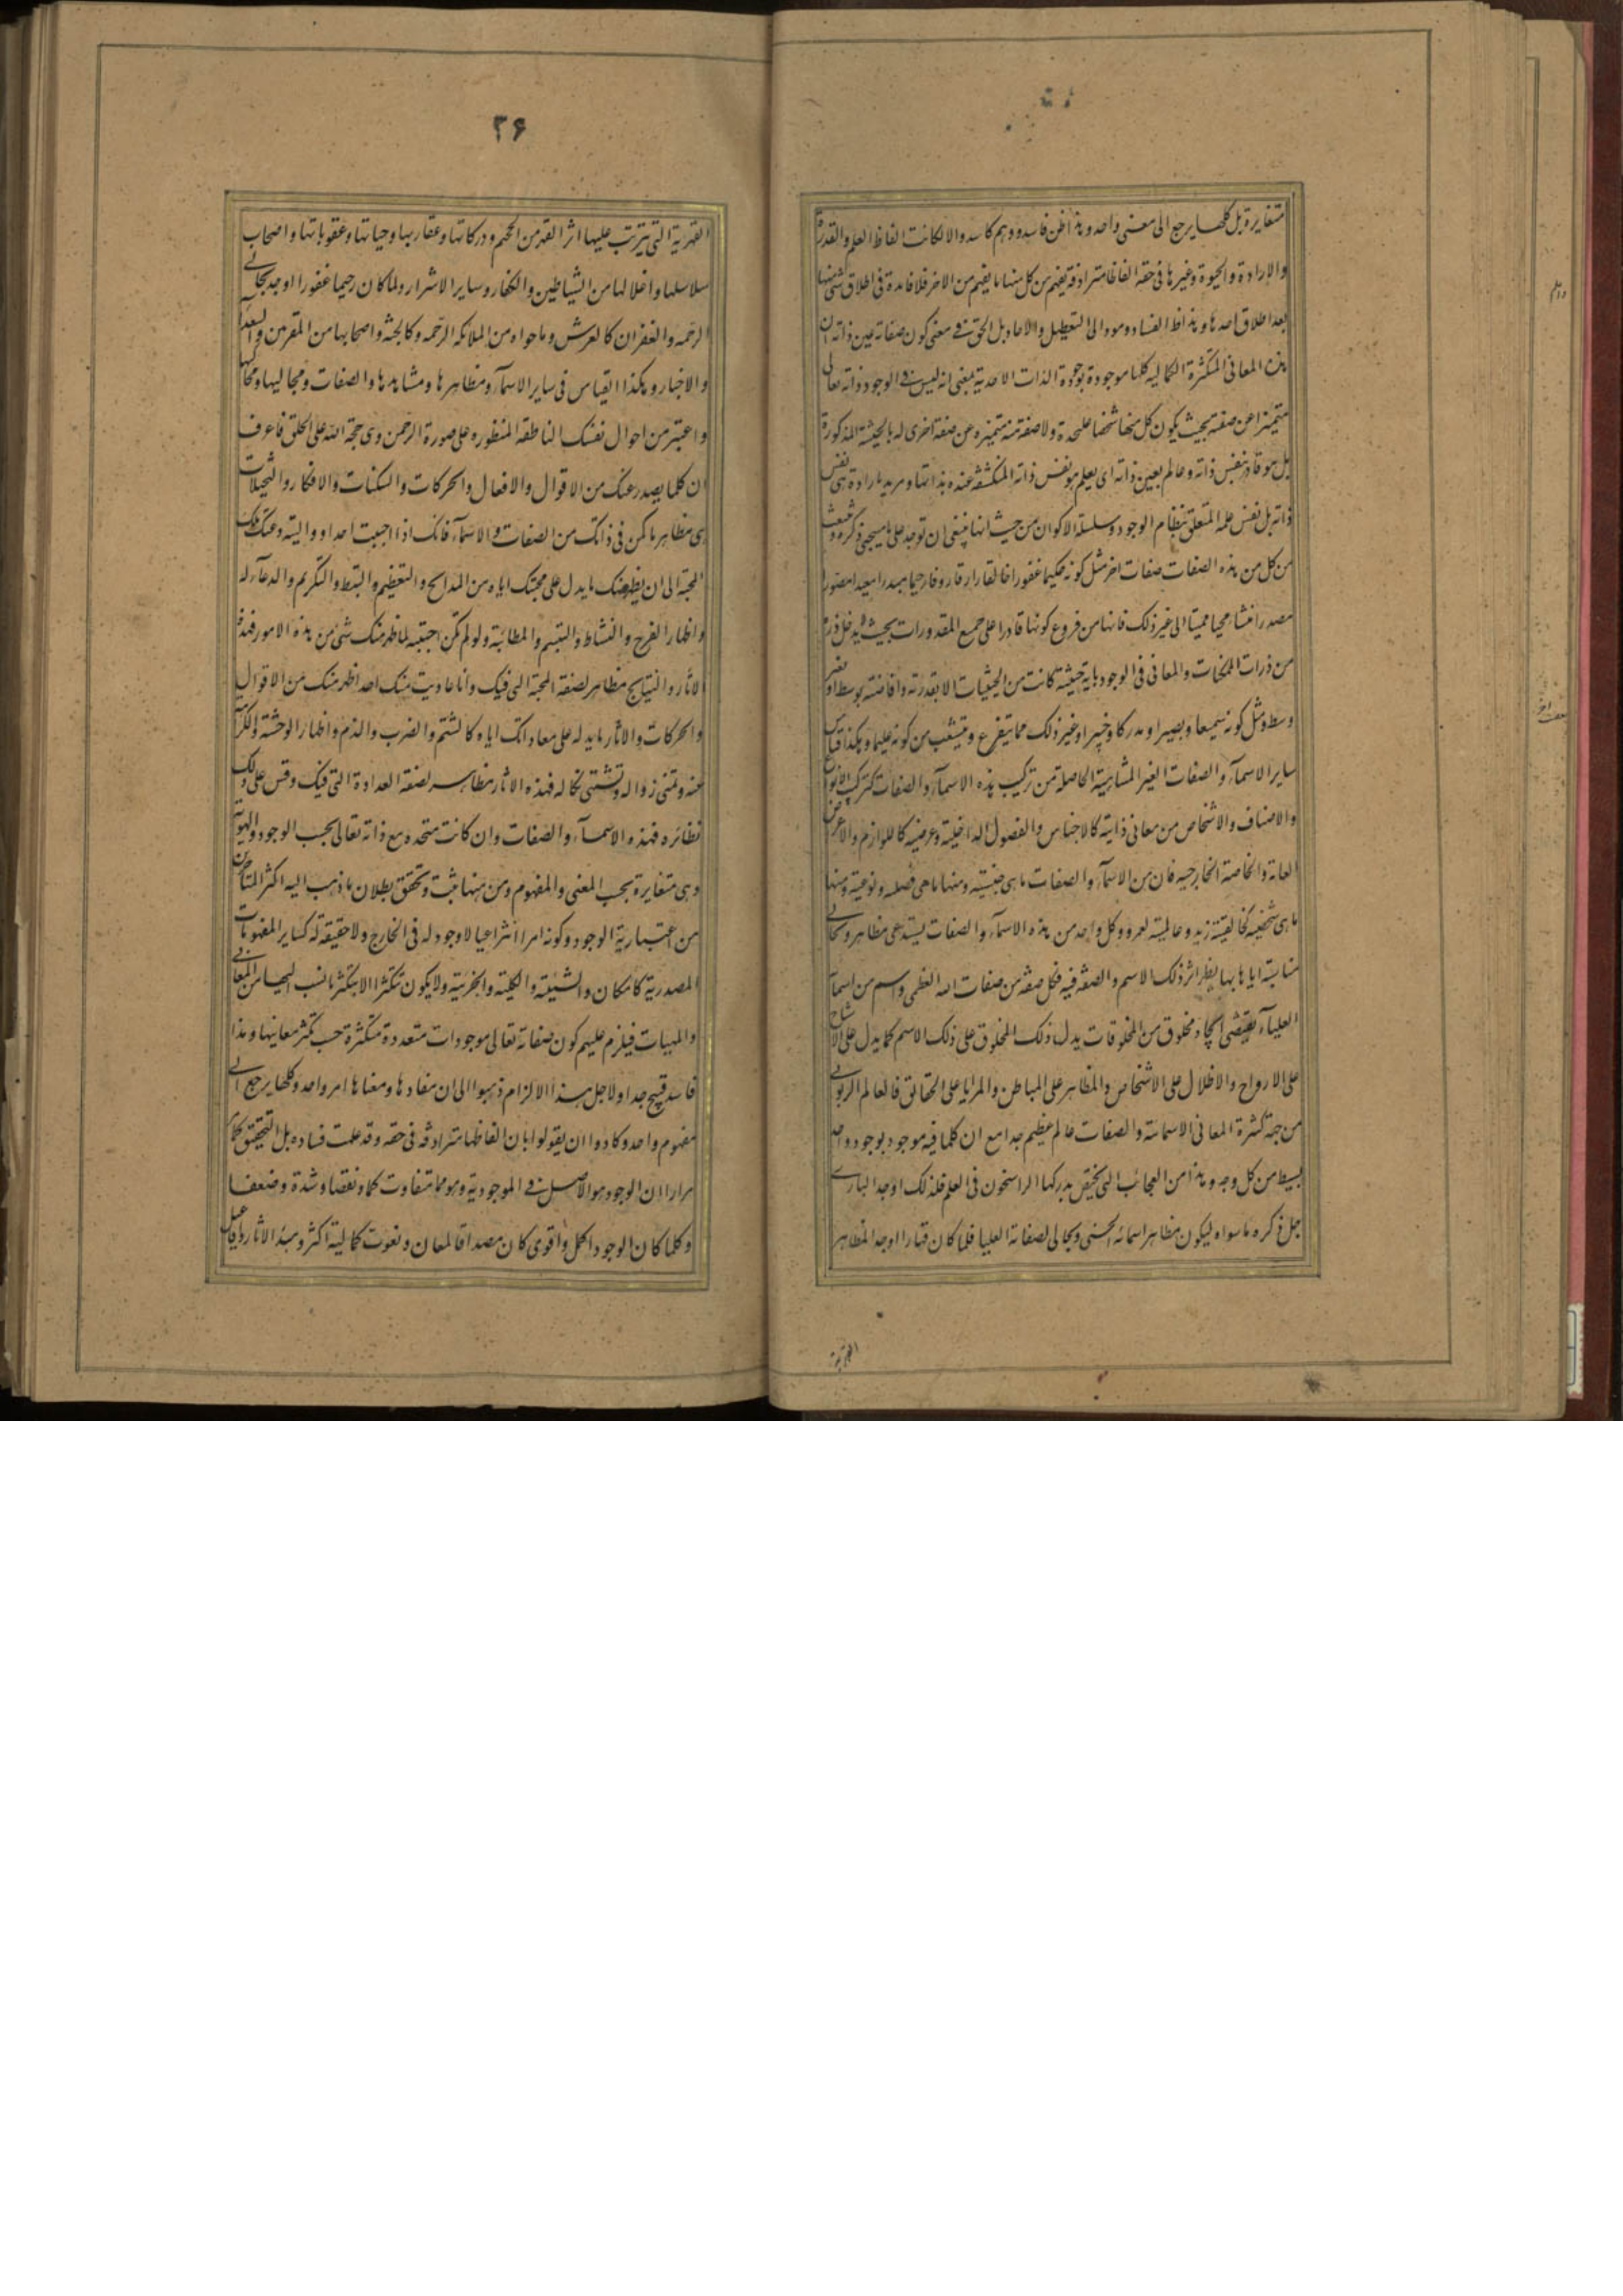 متغايرة بل كلها يرجع الى معنى واحد وهذا ظن فاسد ووهم كاسد والا لكانت الفاظ العلم والقدرة
والارادة والحيوة وغيرها فى حقه الفاظا مترادفة يفهم من كل منها ما يفهم من الاخر فلا فائدة فى اطلاق شئ منها
بعد اطلاق احدها وهذا ظاهر الفساد ومود الى التعطيل والالحاد بل الحق فى معنى كون صفاته عين ذاته ان
هذه المعانى المتكثرة الكماليه كلها موجودة بوجود الذات الاحدية بمعنى انه ليس فى الوجود ذاته تعالى
متميزا عن صفته بحيث يكون كل منها شخصا عليحدة ولا صفة منه متميزه عن صفة اخرى له بالحيثية المذكورة
بل هو قادر بنفس ذاته وعالم بعين ذاته اى يعلم هو نفس ذاته المنكشفه عنده بذاتها ومريد بارادة هى نفس
ذاته بل نفس علمه المتعلق بنظام الوجود وسلسلة الاكوان من حيث انها ينبغى ان توجد على ما سيجيئ ذكره وينبعث
من كل من هذه الصفات صفات اخر مثل كونه حكيما غفورا خالقا رازقا رؤفا رحيما مبدءا معيدا مصورا
مصدرا منشأ محييا مميتا الى غير ذلك فانها من فروع كونها قادرا على جميع المقدورات بحيث لا يدخل ذرة
من ذرات الممكنات والمعانى فى الوجود باية حيثية كانت من الحيثيات الا بقدرته وافاضته بوسط او بغير
وسط ومثل كونه سميعا وبصيرا ومدركا وخبيرا وغير ذلك مما يتفرع ويتشعب من كونه عليما وهكذا قياس
ساير الاسمآء والصفات الغير المتناهية الحاصلة من تركيب هذه الاسمآء والصفات كتركيب الانواع
والاصناف والاشخاص من معانى ذاتية كالاجناس والفصول الداخلية وعرضيه كاللوازم والاعراض
العامة والخاصة الخارجيه فان من الاسمآء والصفات ما هى جنسيته ومنها ما هى فصليه ونوعية ومنها
ما هى شخصيه كخالقيته زيد وعالميته لعمرو وكل واحد من هذه الاسمآء والصفات يستدعى مظاهر ومجالى
مناسبة اياها بها يظهر اثر ذلك الاسم والصفة فيه فكل صفة من صفات الله العظمى واسم من اسمآ
العليآء يقتضى ايجاد مخلوق من المخلوقات يدل ذلك المخلوق على ذلك الاسم كما يدل على الاشباح
على الارواح والاظلال على الاشخاص والمظاهر على المباطن والمرايا على الحقائق فالعالم الربوبى
من جهة كثرة المعانى الاسمائة والصفات عالم عظيم جدا مع ان كلما فيه موجود بوجود واحد
بسيط من كل وجه وهذا من العجائب التى يختص بدركها الراسخون فى العلم فلذلك اوجد البارى
جل ذكره ما سواه ليكون مظاهر اسمائه الحسنى ومجالى لصفاته العليا فلما كان قهارا اوجد المظاهر
القهرية
٢۶
القهرية التى يترتب عليها اثر القهر من الجحيم ودركاتها وعقاربها وحياتها وعقوباتها واصحاب
سلاسلها واغلالها من الشياطين والكفار وساير الاشرار ولما كان رحيما غفورا اوجد مجالى
الرحمه والغفران كالعرش وما حواه من الملائكه الرحمه وكالجنه واصحابها من المقربين والسعدآء
والاخيار وهكذا القياس فى ساير الاسمآء ومظاهرها ومشاهدها والصفات ومجاليها ومحاكيها
واعتبر من احوال نفسك الناطقه المفطوره على صورة الرحمن وهى حجة الله على الخلق فاعرف
ان كلما يصدر عنك من الاقوال والافعال والحركات والسكنات والافكار والتخيلات
هى مظاهر ما كمن فى ذاتك من الصفات والاسمآء فانك اذا احببت احدا وواليته دعتك تلك
المحبة الى ان يظهر عنك ما يدل على محبتك اياه من المدايح والتعظيم والبسط والتكريم والدعآء له
واظهار الفرح والنشاط والتبسم والمطائبة ولو لم تكن احببته لما ظهر منك شئ من هذه الامور فهذه
الاثار والنتايج مظاهر لصفة المحبة التى فيك واذا عاديت منك احد اظهر منك من الاقوال
والحركات والاثار ما يدله على معاداتك اياه كالشتم والضرب والذم واظهار الوحشة والكرا
عنه وتمنى زواله وتشتهى نكاله فهذه الاثار مظاهر لصفة العداوة التى فيك وقس على ذلك
نظائره فهذه الاسمآء والصفات وان كانت متحده مع ذاته تعالى بحسب الوجود والهوية
فهى متغايرة بحسب المعنى والمفهوم ومن منها يثبت وتحقق بطلان ما ذهب اليه اكثر المتأخرين
من اعتبارية الوجود وكونه امرا انتزاعيا لا وجود له فى الخارج ولا حقيقة له كساير المفهومات
المصدرية كالامكان والشيئية والكلية والجزئية ولا يكون تكثرا الا بتكثر ما نسب اليها من المعانى
والمهيات فيلزم عليهم كون صفاته تعالى موجودات متعددة متكثرة حسب تكثر معانيها وهذا
فاسد قبيح جدا ولاجل هذا الالزام ذهبوا الى ان مفادها ومعناها امر واحد وكلها يرجع الى
مفهوم واحد وكادوا ان يقولوا بان الفاظها مترادفة فى حقه وقد علمت فساده بل التحقيق كما
مرارا ان الوجود هو الاصل فى الموجودية وهو مما متفاوت كما ونقصا وشدة وضعفا
وكلما كان الوجود اكمل واقوى كان مصداقا لمعان ونعوت كمالية اكثر ومبدء الاثار وافاعيل